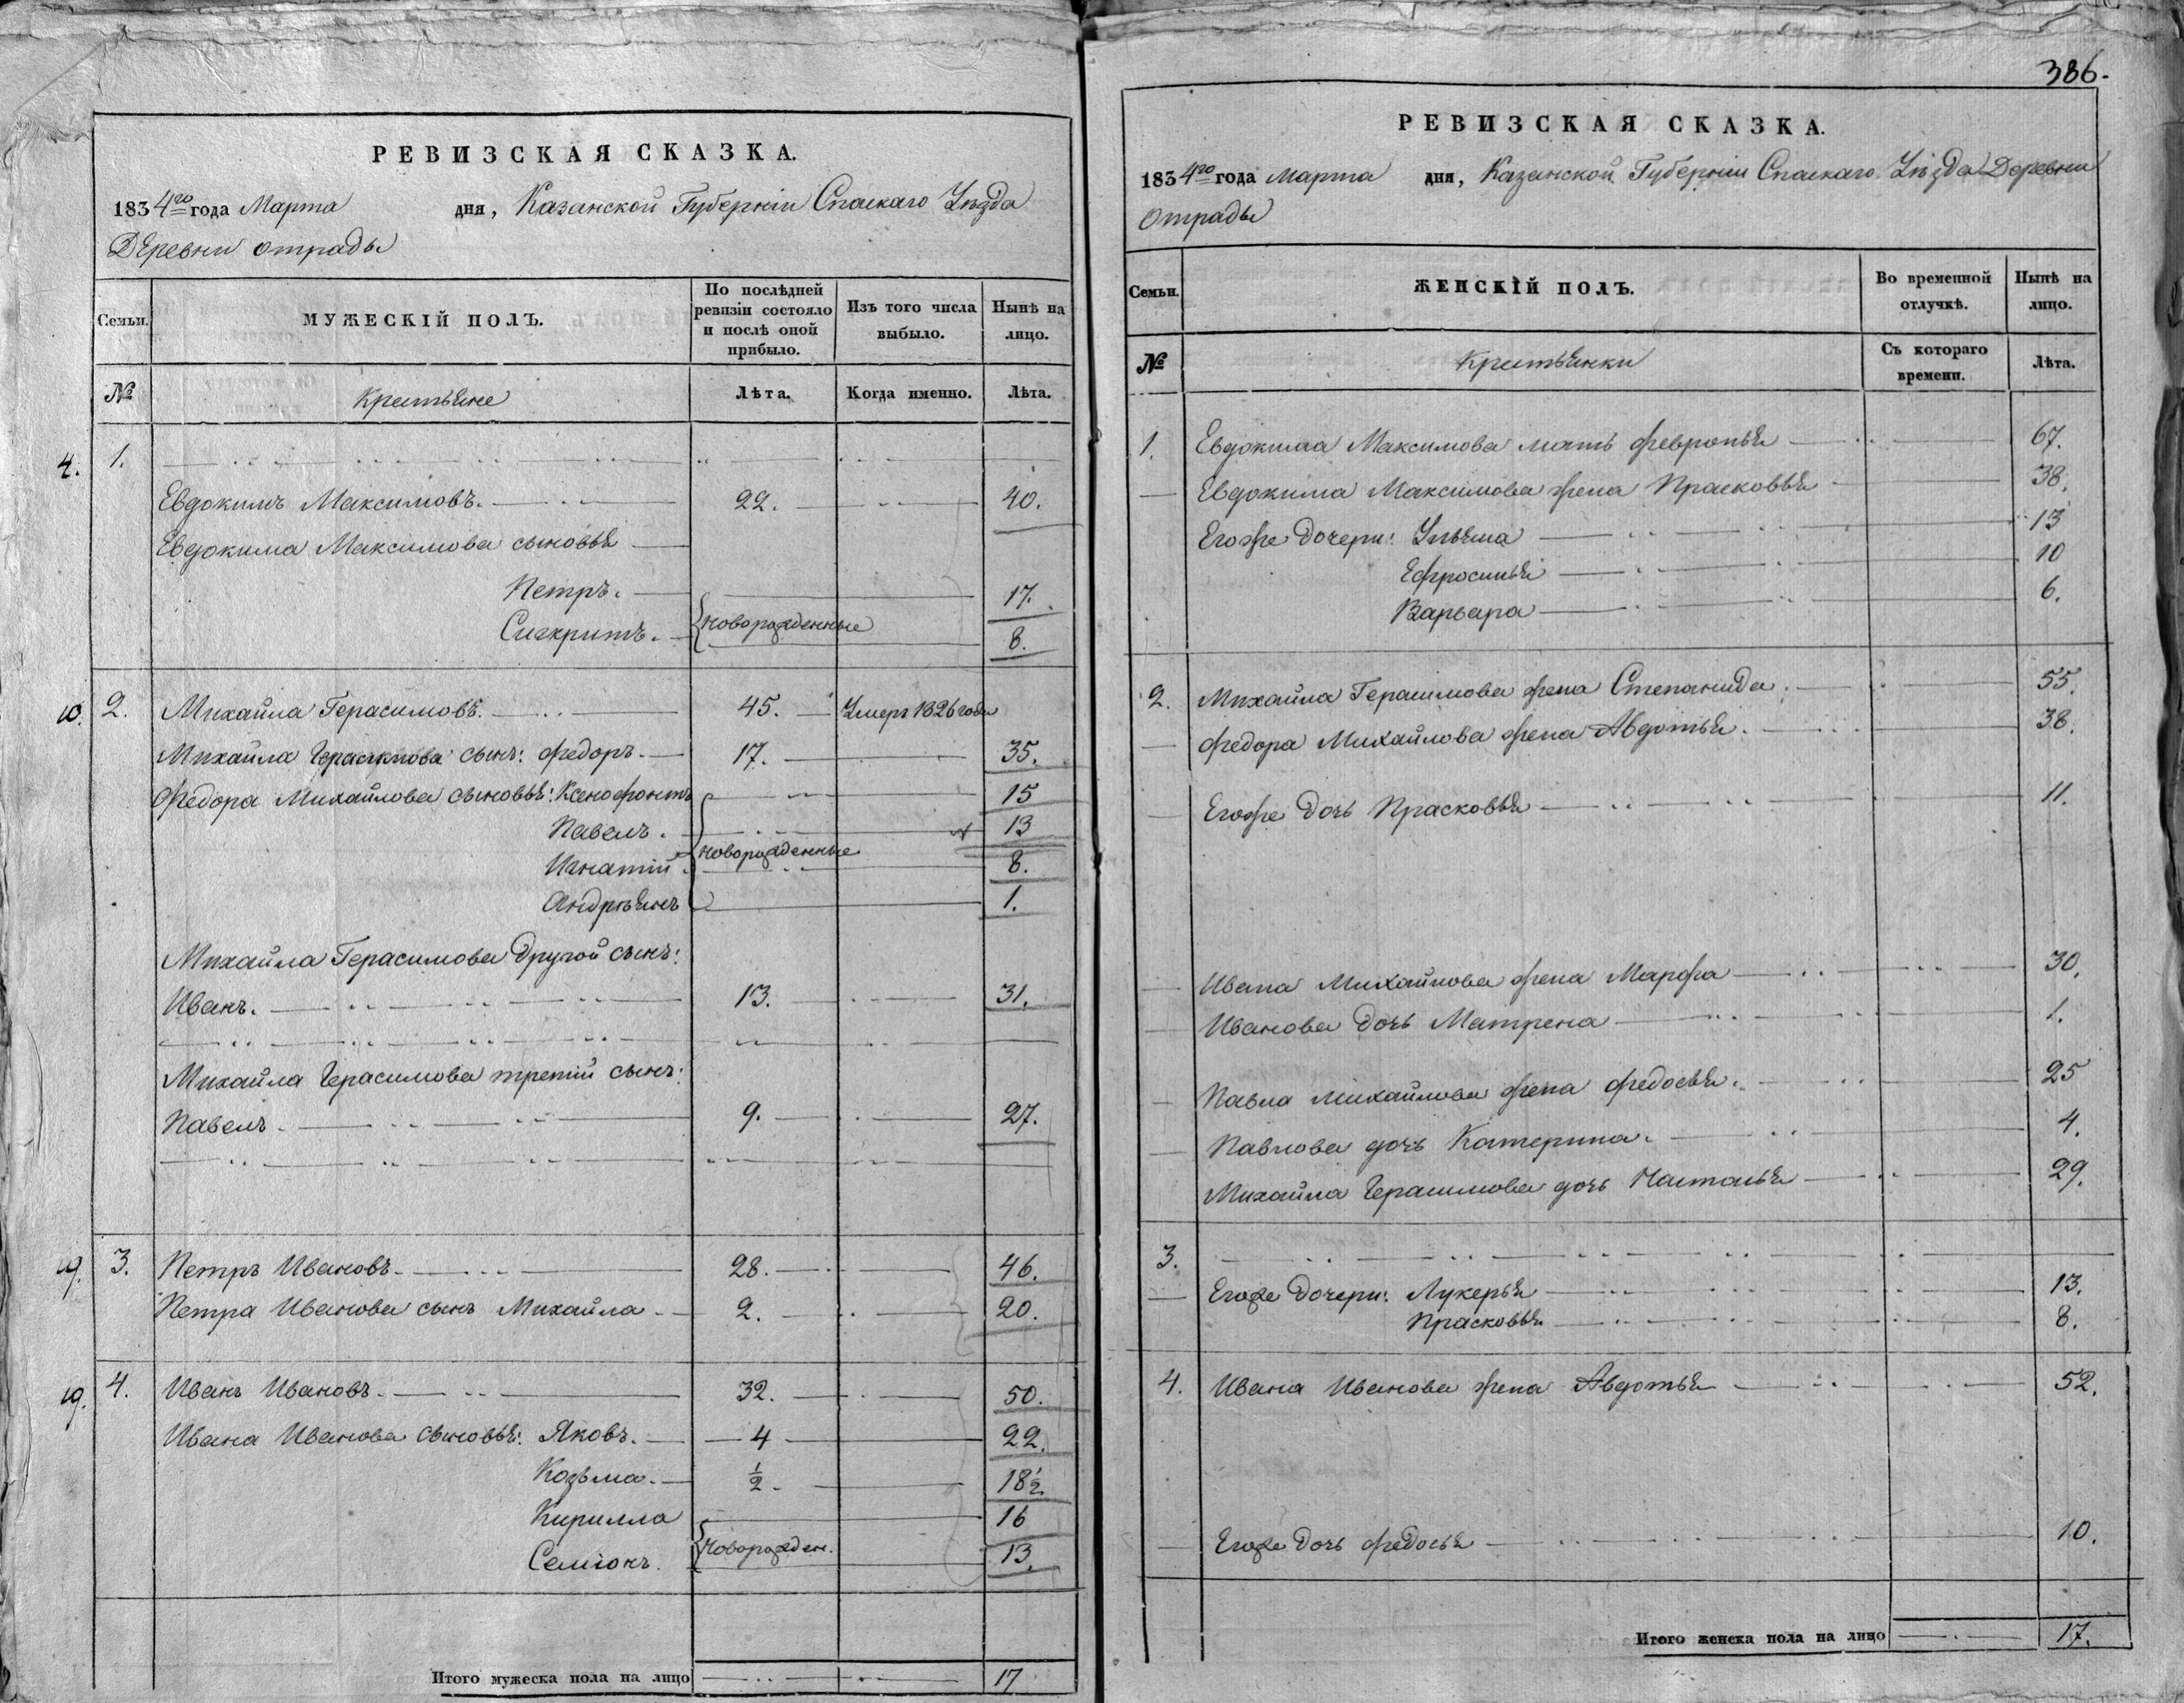 РЕВИЗСКАЯ СКАЗКА.
1834го года Марта дня, Казанской Губерніи Спаскаго Уѣзда
Деревни отрады
Семьи. МУЖЕСКІЙ ПОЛЪ. По послѣдней ревизіи состояло и послѣ оной прибыло. Изъ того числа выбыло. Нынѣ на лицо.
№ Крестьяне Лѣта. Когда именно. Лѣта.
4. 1.
Евдокимъ Максимовъ. 22. 40.
Евдокима Максимова сыновья
Петръ. 17.
новорожденные
8.
10. 2. Михайла Герасимовъ. 45. Умеръ 1826 года
Михайла Герасимова сынъ: Федоръ. 17. 35.
Федора Михайлова сыновья: Ксенофонтъ 15
Павелъ. 13
новорожденные
Игнатій 8.
Андреянъ 1.
Михайла Герасимова другой сынъ:
Иванъ. 13. 31.
Михайла Герасимова третій сынъ:
Павелъ. 9. 27.
19. 3. Петръ Ивановъ. 28. 46.
Петра Иванова сынъ Михайла 2. 20.
19. 4. Иванъ Ивановъ. 32. 50.
Ивана Иванова сыновья: Яковъ. 4 22.
Козьма. 1/2 18 1/2
Кирилла 16
Семіонъ. новорожден. 13.
Итого мужеска пола на лицо 17
386.
РЕВИЗСКАЯ СКАЗКА.
1834го года Марта дня, Казанской Губерніи Спаскаго Уѣзда Деревни
Отрады
Семьи. ЖЕНСКІЙ ПОЛЪ. Во временной отлучкѣ. Нынѣ на лицо.
№ Крестьянки Съ котораго времени. Лѣта.
1. Евдокима Максимова мать Февронья 67.
Евдокима Максимова жена Прасковья 38.
Егоже дочери: Ульяна 13
Ефросинья 10
Варвара 6.
2. Михайла Герасимова жена Степанида. 55.
Федора Михайлова жена Авдотья. 38.
Егоже дочь Прасковья 11.
Ивана Михайлова жена Марфа 30.
Иванова дочь Матрена 1.
Павла Михайлова жена Федосья. 25
Павлова дочь Катерина. 4.
Михайла Герасимова дочь Настасья 29.
3.
Егоже дочери: Лукерья 13.
Прасковья 8.
4. Ивана Иванова жена Авдотья 52.
Егоже дочь Федосья 10.
Итого женска пола на лицо 17.